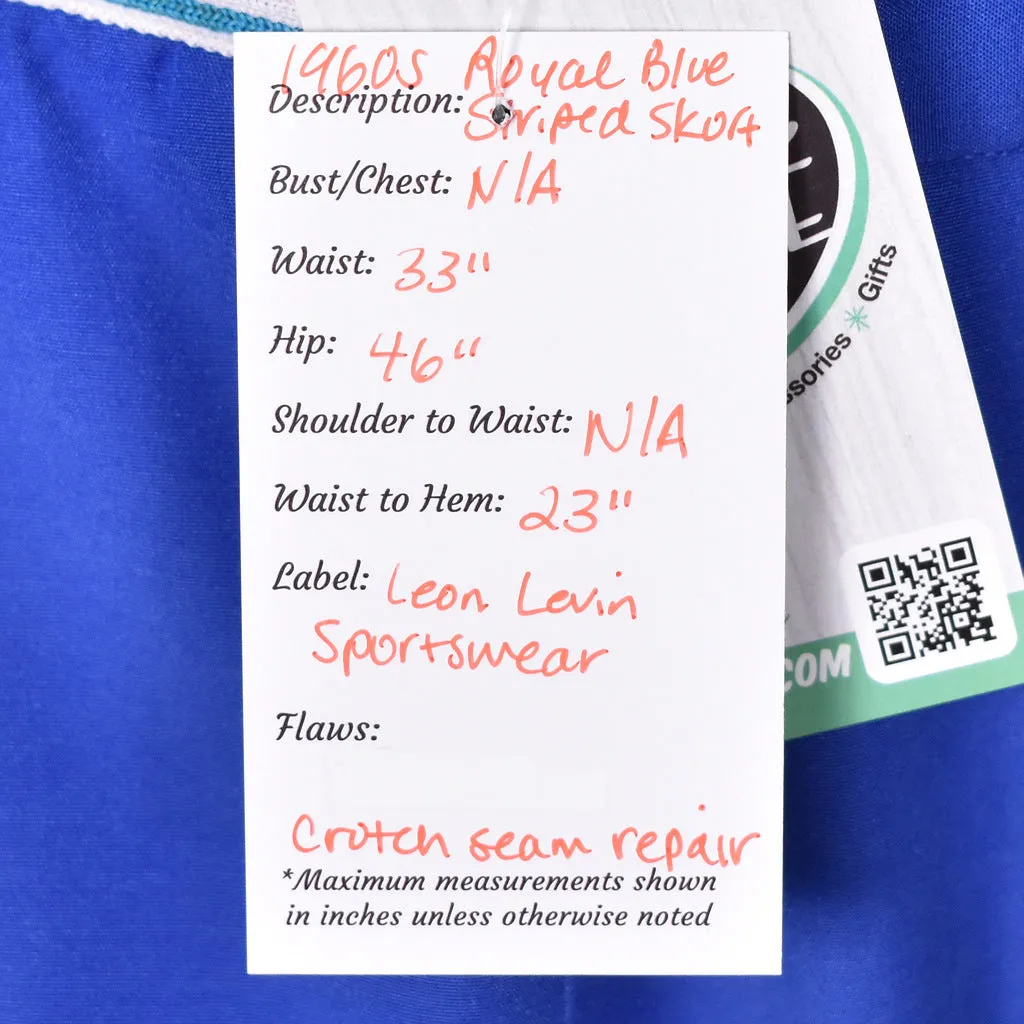 1960s Royal Blue
Description: Striped Skort
Bust/Chest: N/A
Waist: 33"
Hip: 46"
Shoulder to Waist: N/A
Waist to Hem: 23"
Label: Leon Levin
Sportswear
Flaws:
Crotch seam repair
*Maximum measurements shown
in inches unless otherwise noted
ssories * Gifts
.COM